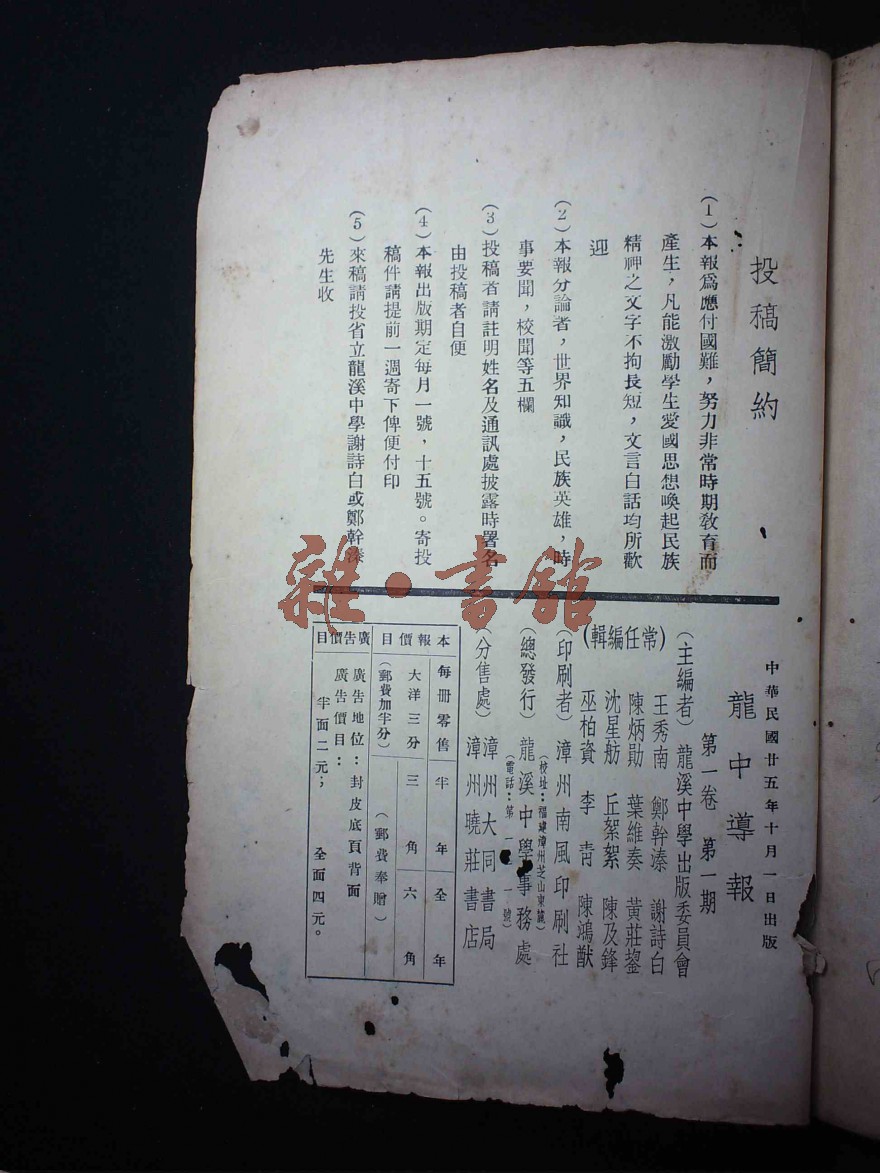 投稿簡約
(1)本報爲應付國難，努力非常時期敎育而
產生，凡能激勵學生愛國思想喚起民族
精神之文字不拘長短，文言白話均所歡
迎
(2)本報分論著，世界知識，民族英雄，時
事要聞，校聞等五欄
(3)投稿者請註明姓名及通訊處披露時署名
由投稿者自便
(4)本報出版期定每月一號，十五號。寄投
稿件請提前一週寄下俾便付印
(5)來稿請投省立龍溪中學謝詩白或鄭幹溱
先生收
中華民國廿五年十月一日出版
龍中導報
第一卷 第一期
(主編者)龍溪中學出版委員會
(常任編輯)
王秀南 鄭幹溱 謝詩白
陳炳勛 葉維奏 黃莊鋆
沈星舫 丘絮絮 陳及鋒
巫柏資 李青 陳鴻猷
(印刷者)漳州南風印刷社
(校址：福建漳州芝山東麓)
(總發行)龍溪中學事務處
(電話：第一 一號)
(分售處)漳州大同書局
漳州曉莊書店
本報價目
每冊零售 半年 全年
大洋三分 三角 六角
(郵費加半分) (郵費奉贈)
廣告價目
廣告地位：封皮底頁背面
廣告價目：
半面二元； 全面四元。
雜·書館